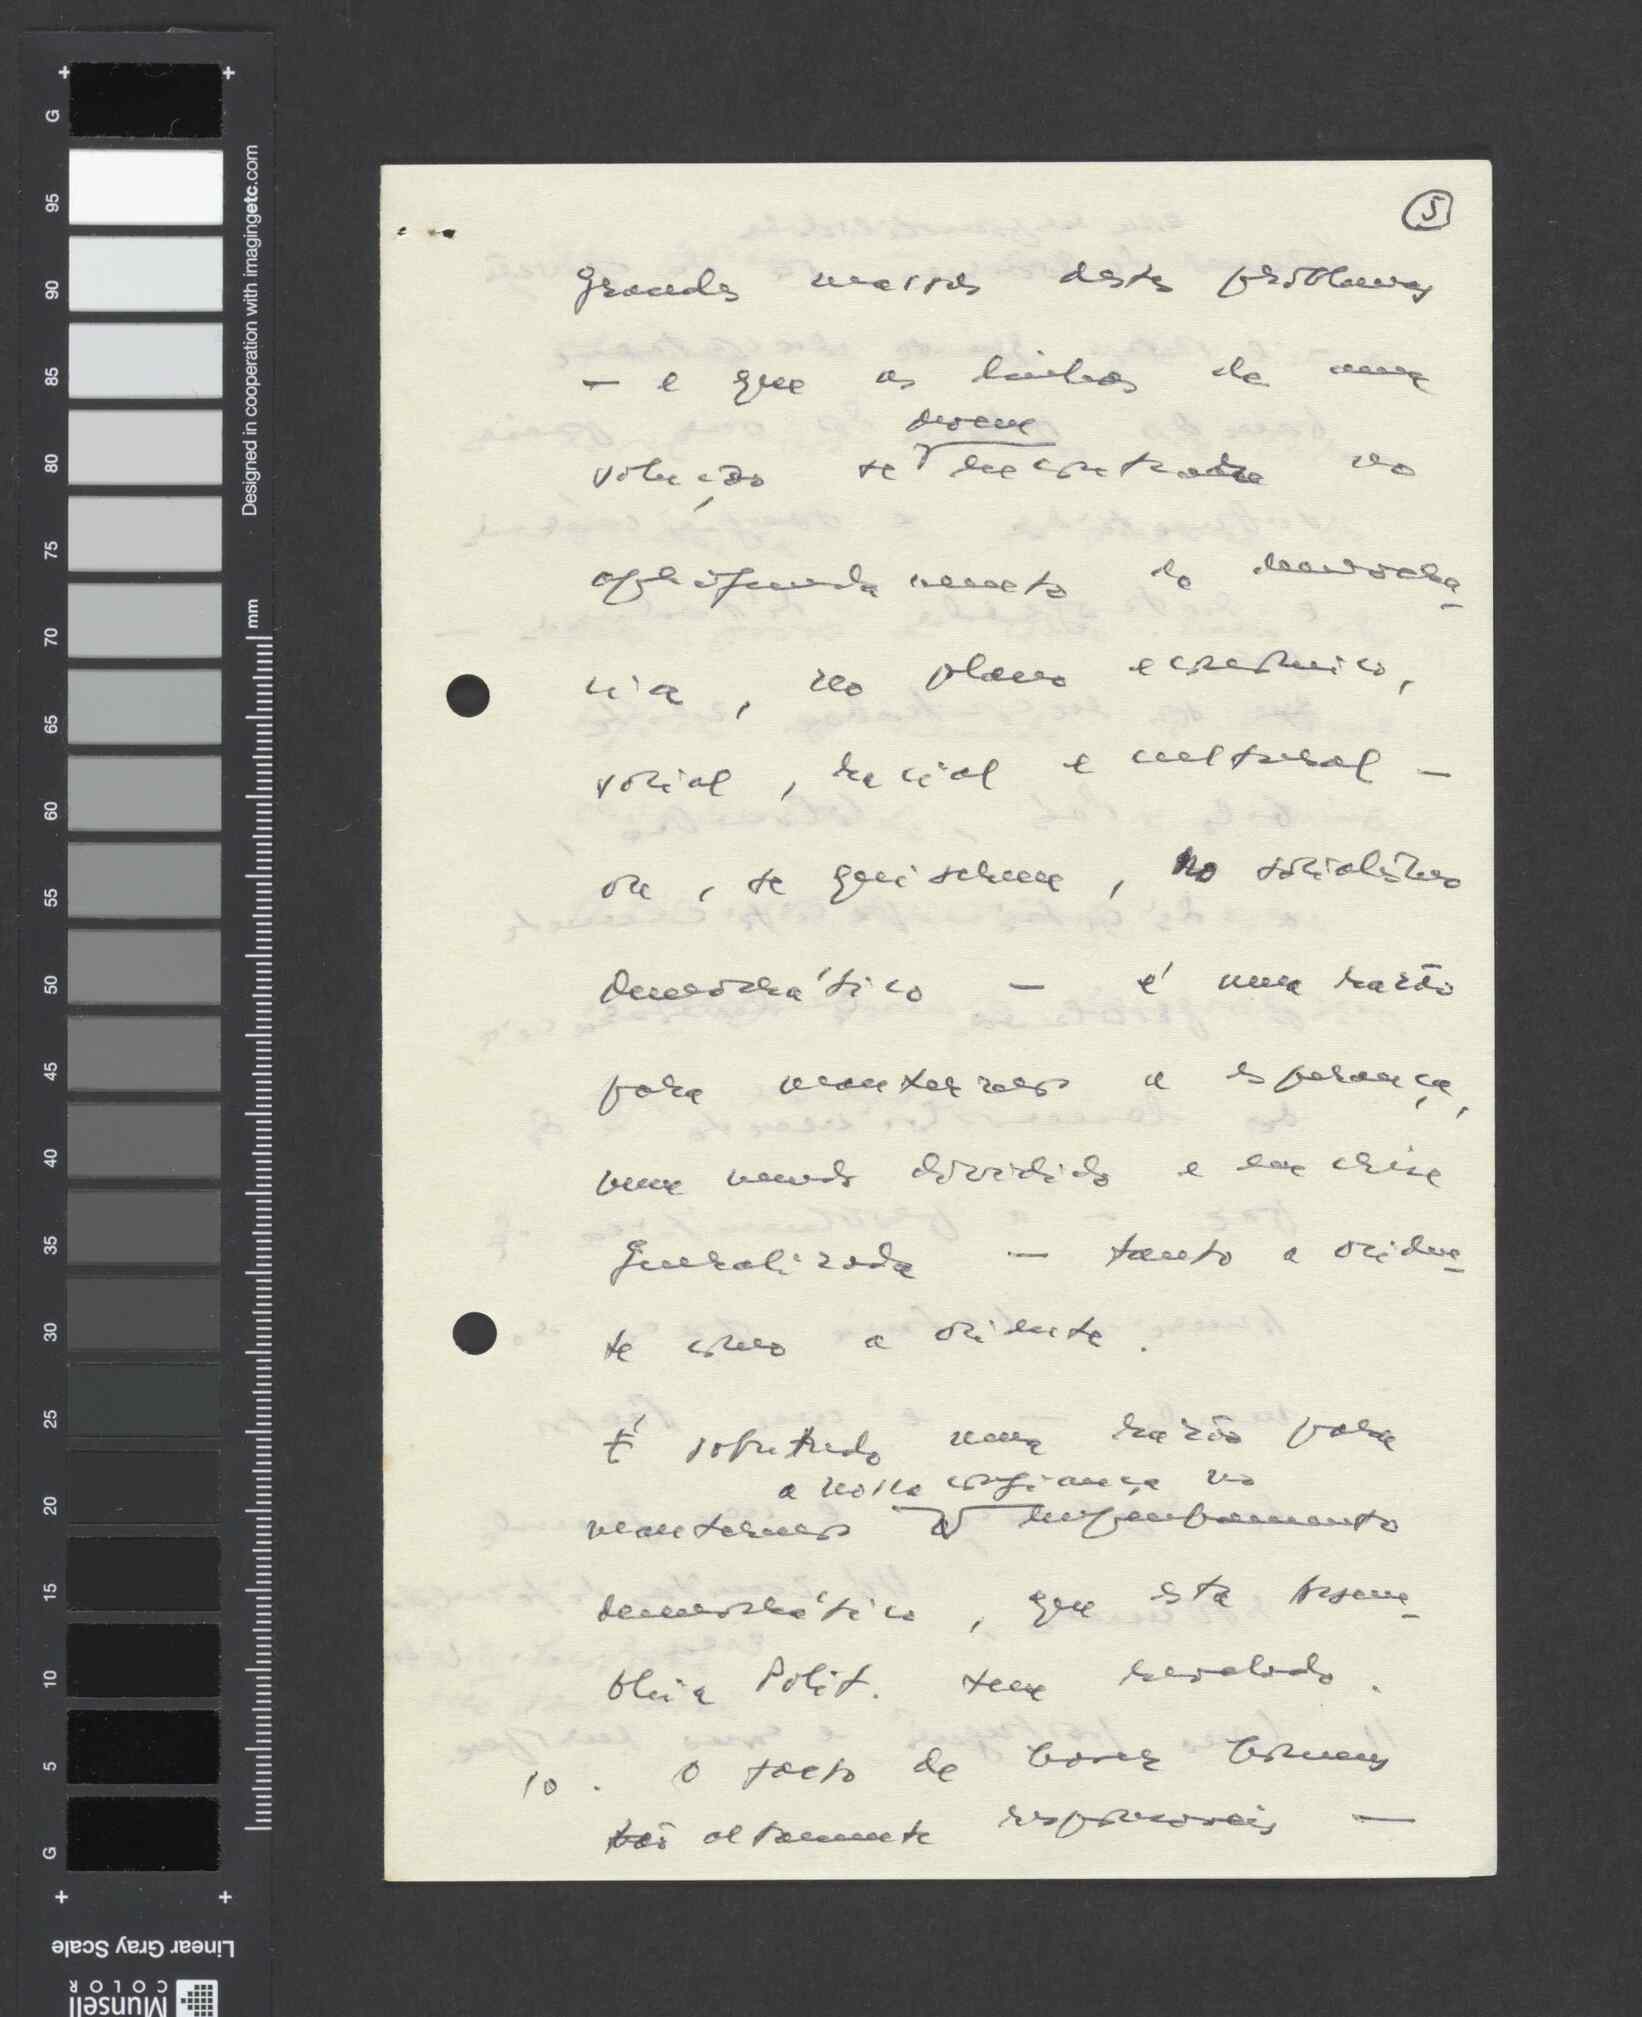 5
grandes massas destes problemas
— e que as linhas de uma
devem
solução se encontram no
aprofundamento da democra-
cia, no plano económico,
social, racial e cultural —
ou, se quiserem, no socialismo
democrático — é uma razão
para mantermos a esperança,
num mundo dividido e em crise
generalizada — tanto a ociden-
te como a oriente.
É sobretudo uma razão para
a nossa confiança no
mantermos
democrático, que esta Assem-
bleia Polit. tem revelado.
10. O facto de homens
tão altamente responsáveis —
G
95
90
85
80
75
70
65
60
55
50
45
40
35
30
25
20
15
10
5
G
Designed in cooperation with imagingetc.com
mm
Linear Gray Scale
Munsell
COLOR